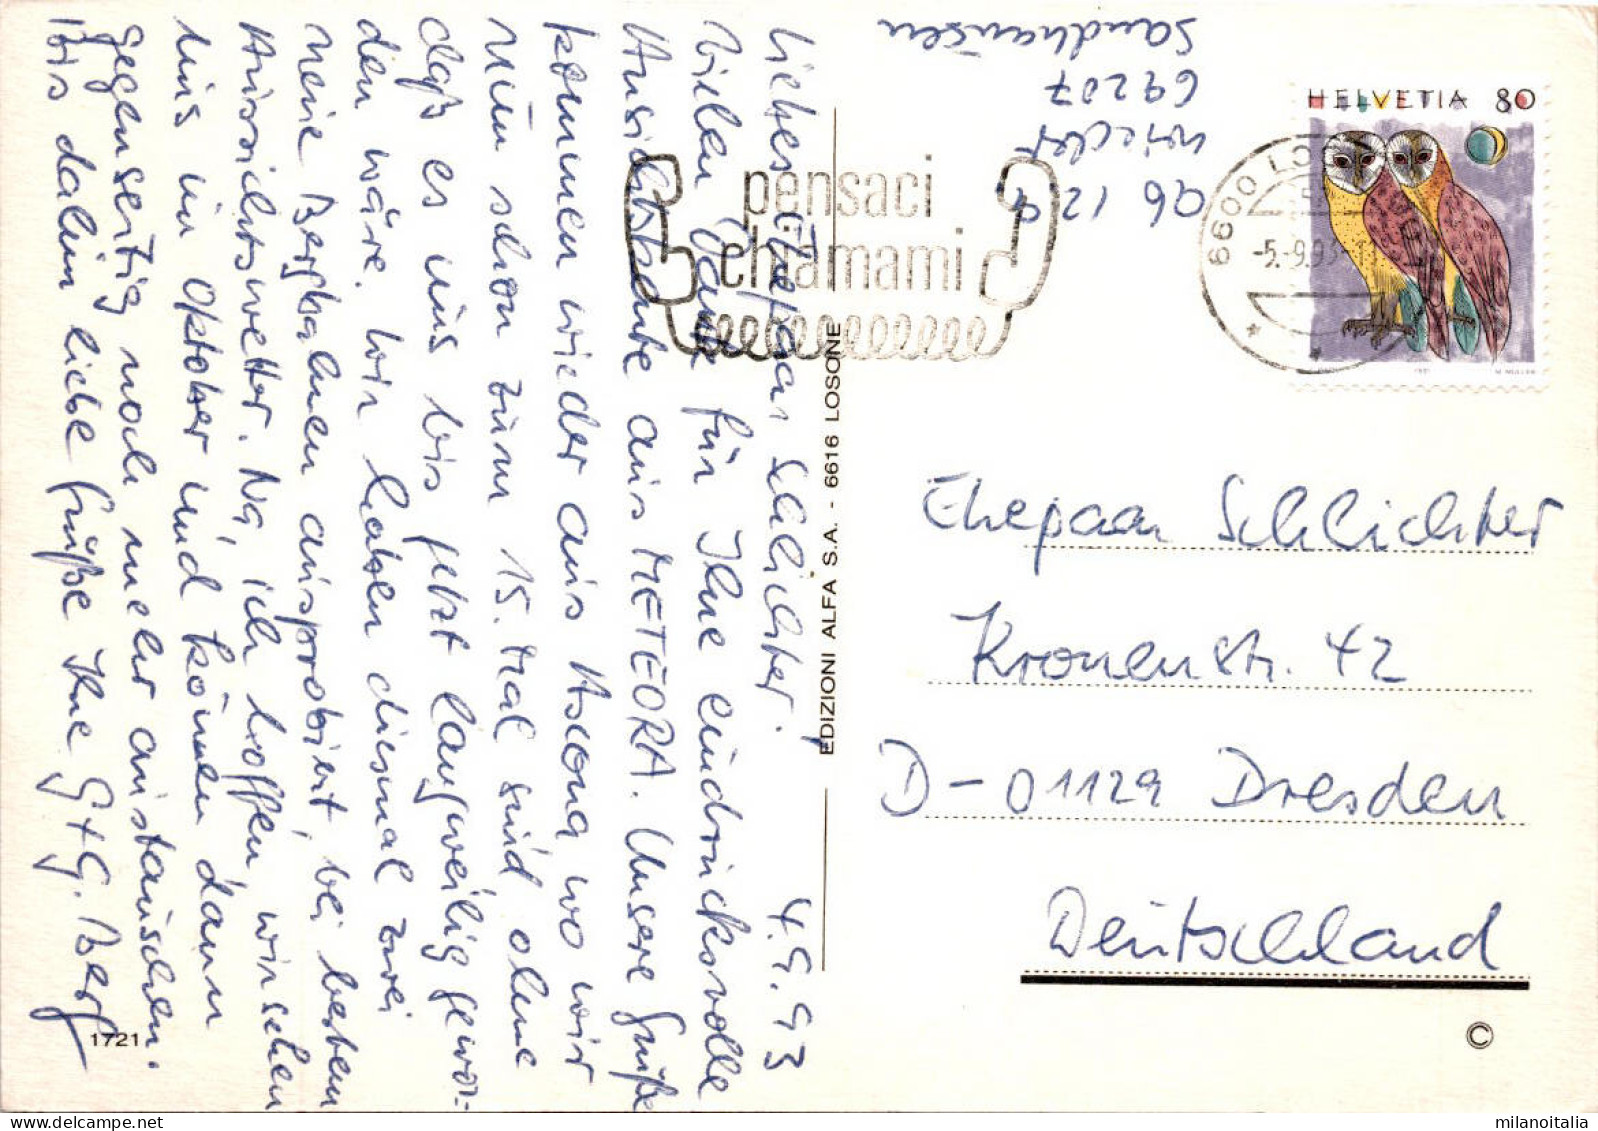 Liebes Ehepaar Schlichter. 4.9.93
Vielen Dank für Ihre eindrucksvolle
Ansichtskarte aus METEORA. Unsere Grüße
kommen wieder aus Ascona wo wir
nun schon zum 15. Mal sind ohne
daß es uns bis jetzt langweilig gewor-
den wäre. Wir haben diesmal zwei
neue Bergbahnen ausprobiert, bei bestem
Aussichtswetter. Na, ich hoffen, wir sehen
uns im Oktober und können dann
gegenseitig noch mehr austauschen.
Bis dahin liebe Grüße Ihre G+G. Berg
1721
EDIZIONI ALFA S.A. - 6616 LOSONE
ab 12.9
wieder
69207
Sandhausen
pensaci
chiamami
6600 LOC
-5.-9.93-11
HELVETIA 80
1991
M. MÜLLER
Ehepaar Schlichter
Kronenstr. 42
D-01129 Dresden
Deutschland
©
milanoitalia